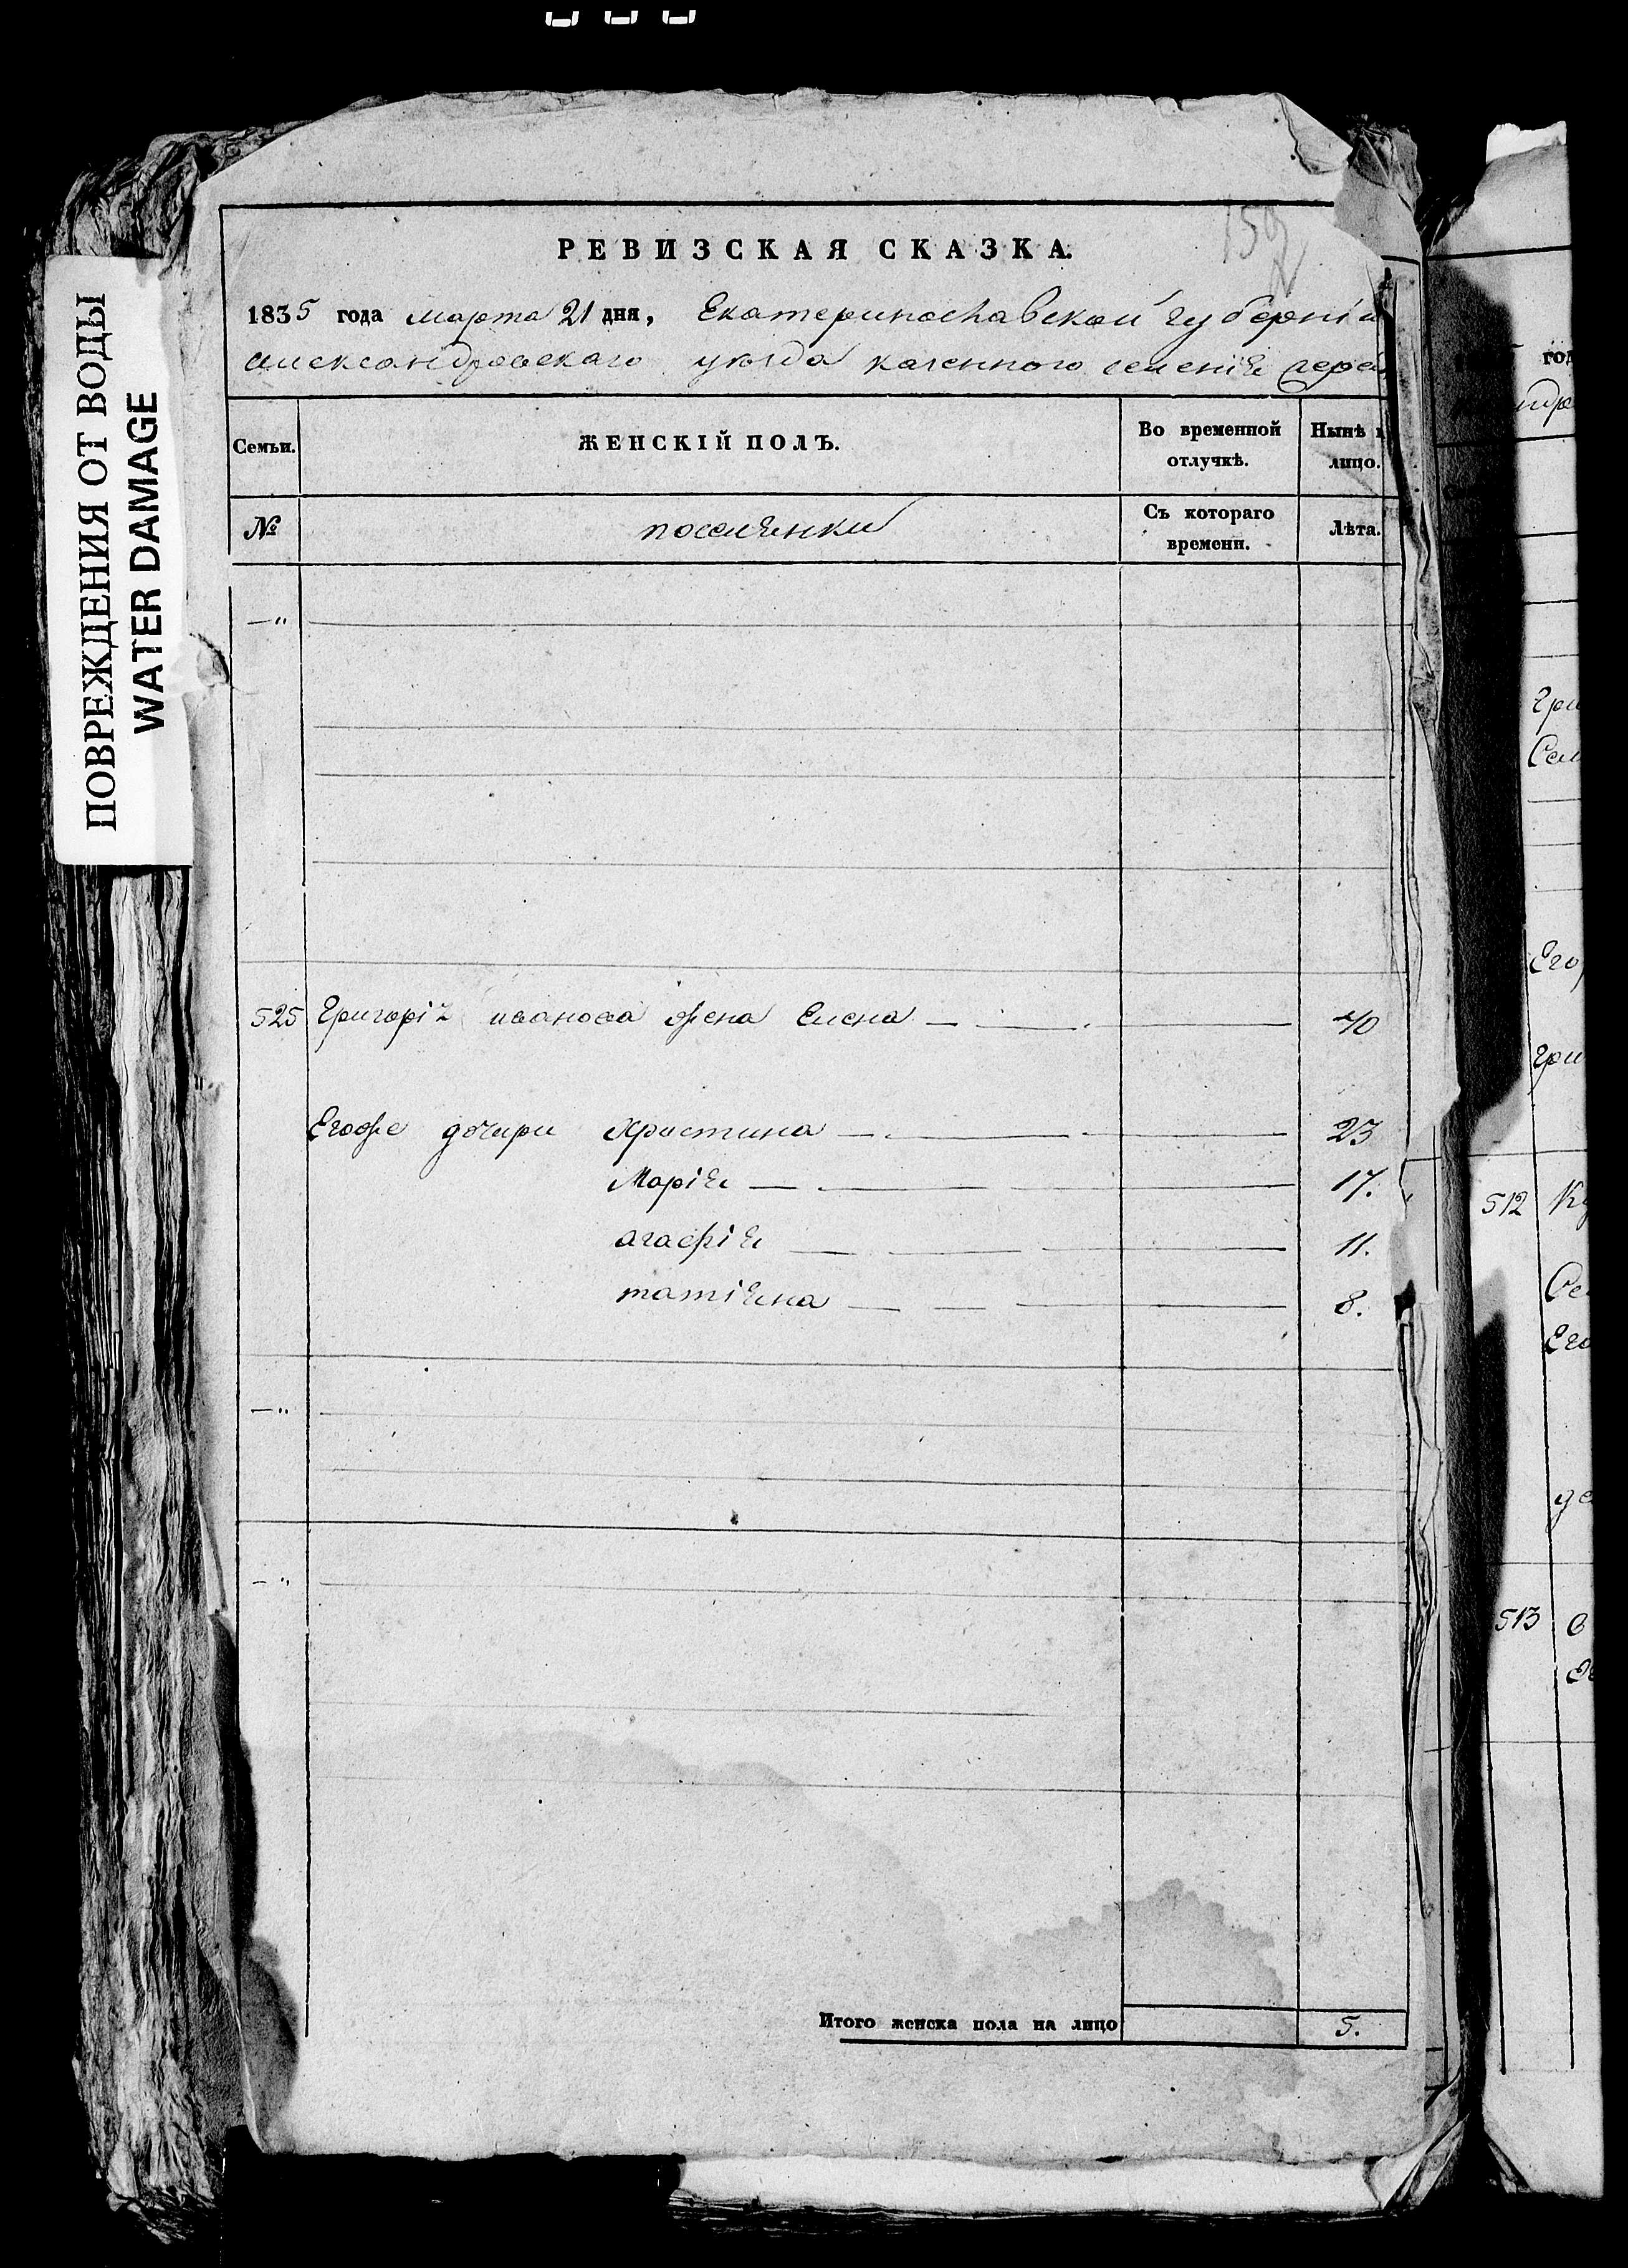 ПОВРЕЖДЕНИЯ ОТ ВОДЫ
WATER DAMAGE
159
РЕВИЗСКАЯ СКАЗКА.
1835 года марта 21 дня, Екатеринославской губерніи
александровскаго уезда казенного селеніе
Семьи. ЖЕНСКІЙ ПОЛЪ. Во временной отлучкѣ. Нынѣ лицо.
№ поселянки Съ котораго времени. Лѣта.
—"
525 Григорія иванова жена Елена 40
Егоже дочери Христина 23
Марія 17.
агафія 11.
татіяна 8.
—"
—"
Итого женска пола на лицо 5.
год
Гри
Сем
Его
Гри
512 Ку
Се
Его
513